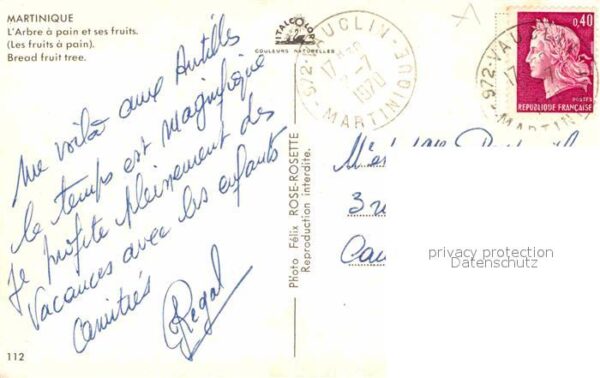 MARTINIQUE
L'Arbre à pain et ses fruits.
(Les fruits à pain).
Bread fruit tree.
ITALCOLOR
COULEURS NATURELLES
972-VAUCLIN-
17H
-7
1970
MARTINIQUE
972-VAUCLIN
17
MARTIN
0,40
POSTES
REPUBLIQUE FRANÇAISE
Me voilà aux Antilles
le temps est magnifique
Je profite pleinement des
Vacances avec les enfants
Amitiés
Regal
Photo Félix ROSE-ROSETTE
Reproduction interdite.
3
privacy protection
Datenschutz
112